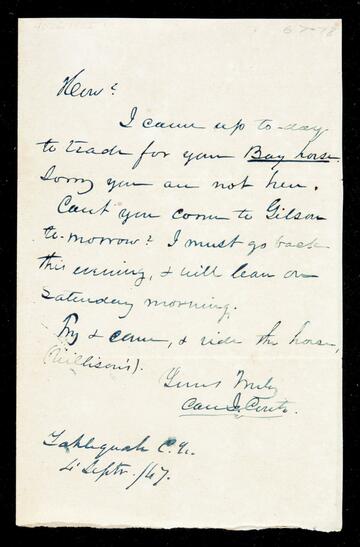 I came up to-day
to trade for your Bay horse.
Sorry you are not here.
Can't you come to Gibson
to-morrow? I must go back
this evening, & will leave on
Saturday morning.
Try & come, & ride the horse,
Yours Truly
Tahlequah C. N.
4' Septr. /47.